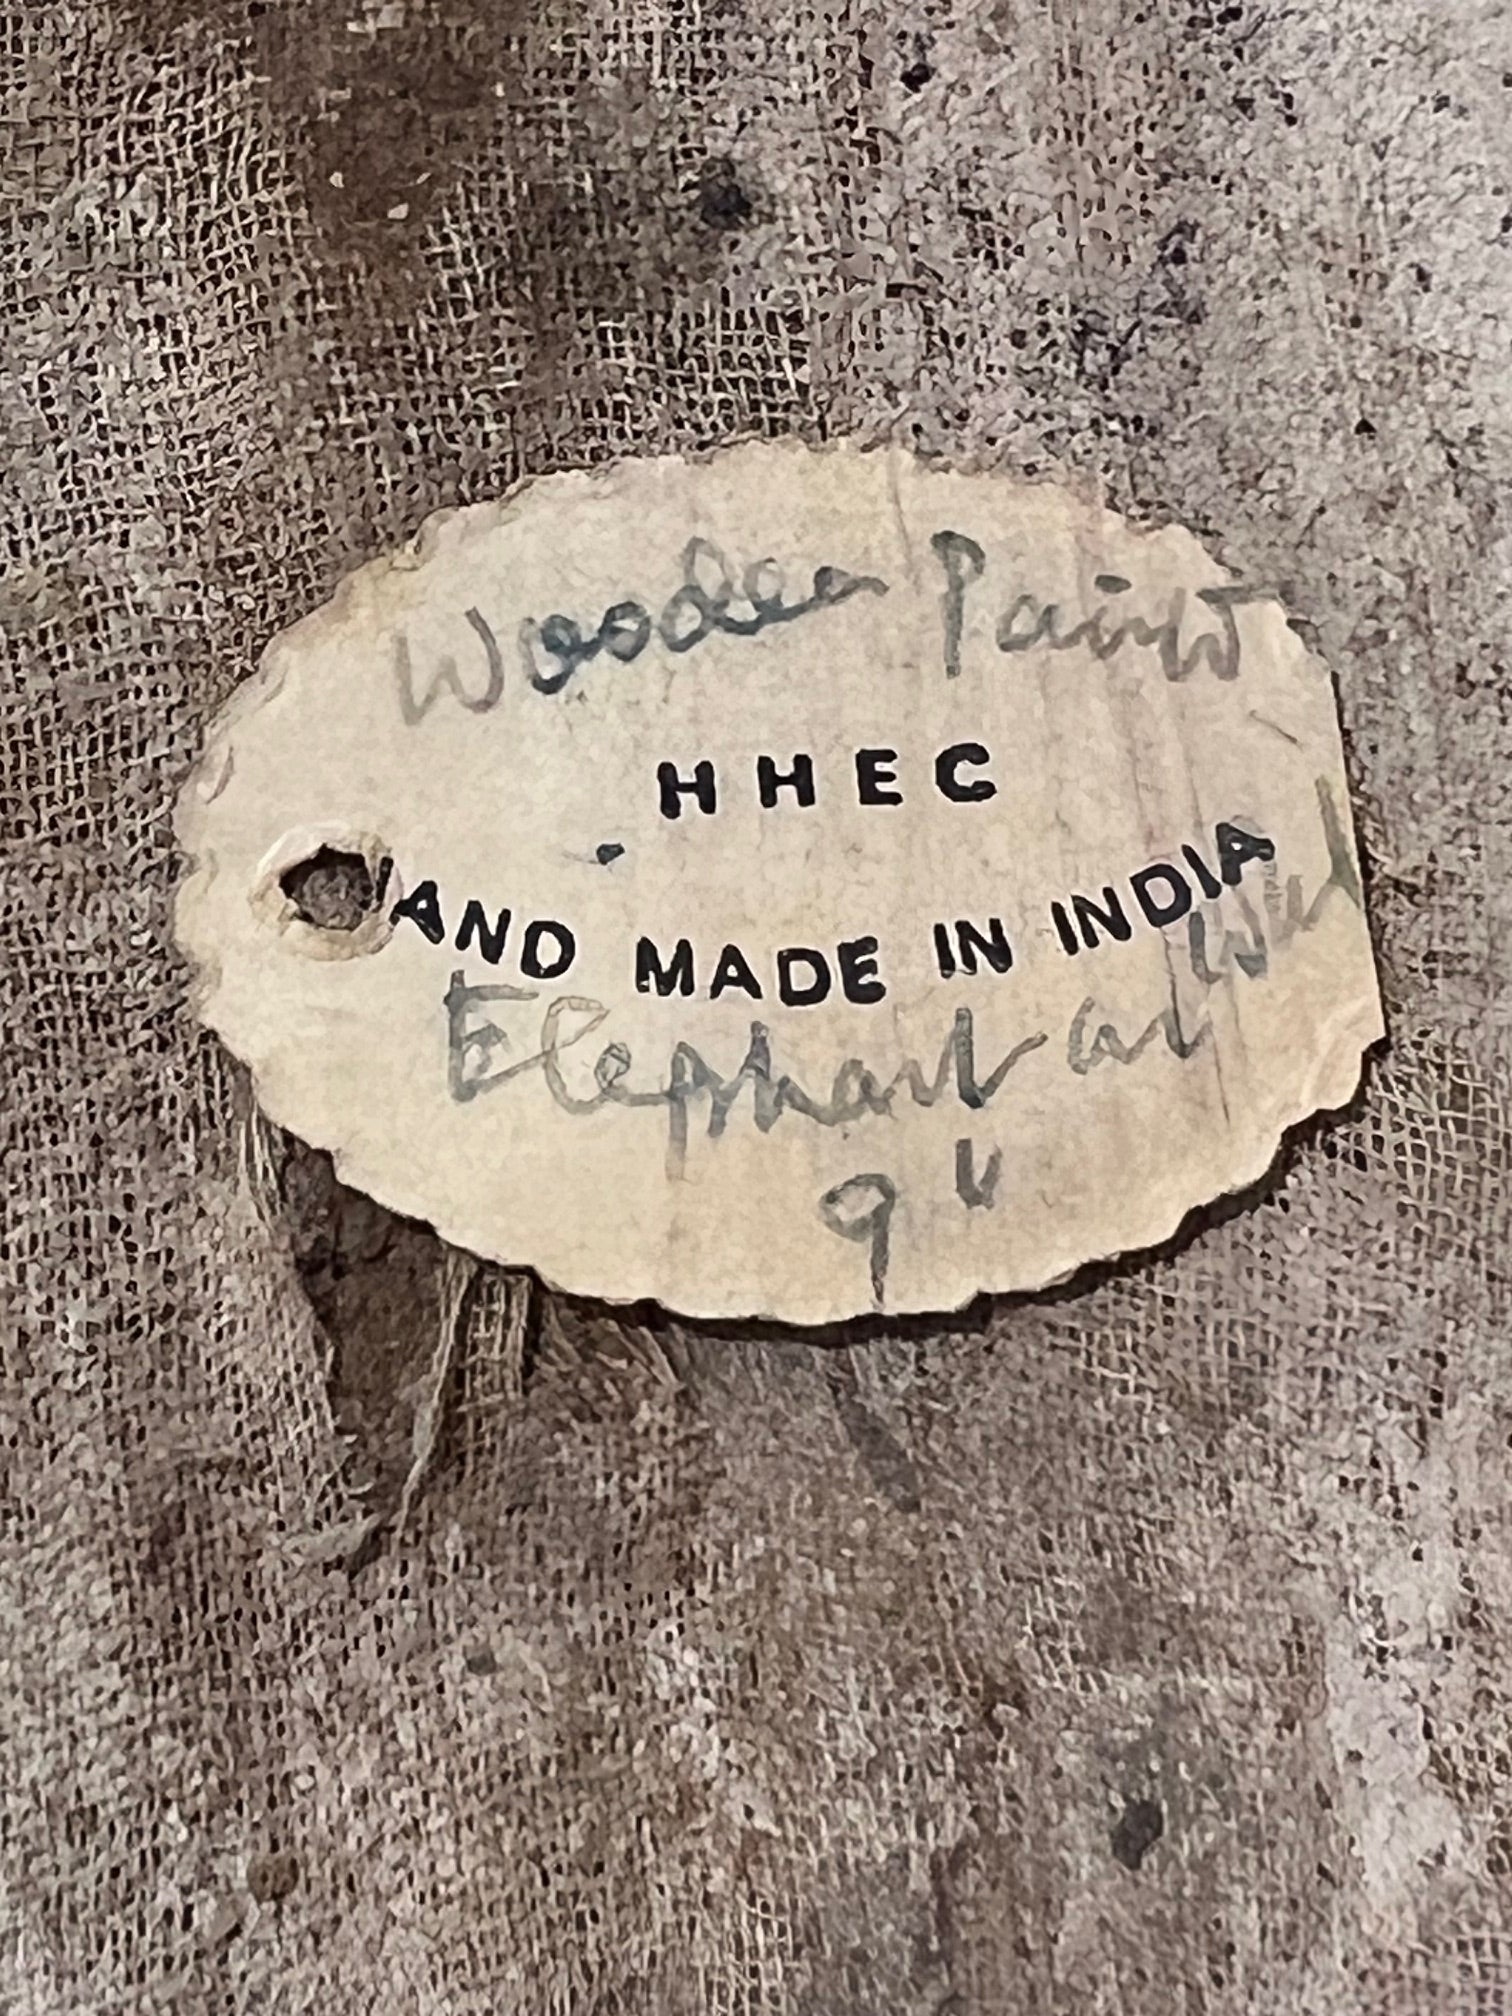 Wooden Paint
HHEC
HAND MADE IN INDIA
Elephant
9"